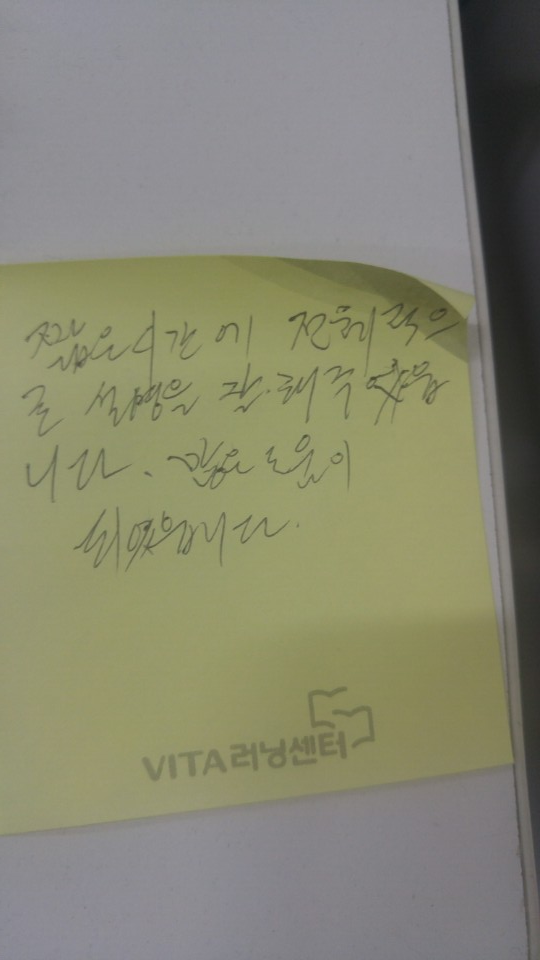 짧은시간에 전체적으
로 설명을 잘.해주었음
니다. 많은 도움이
되었음니다.
VITA러닝센터